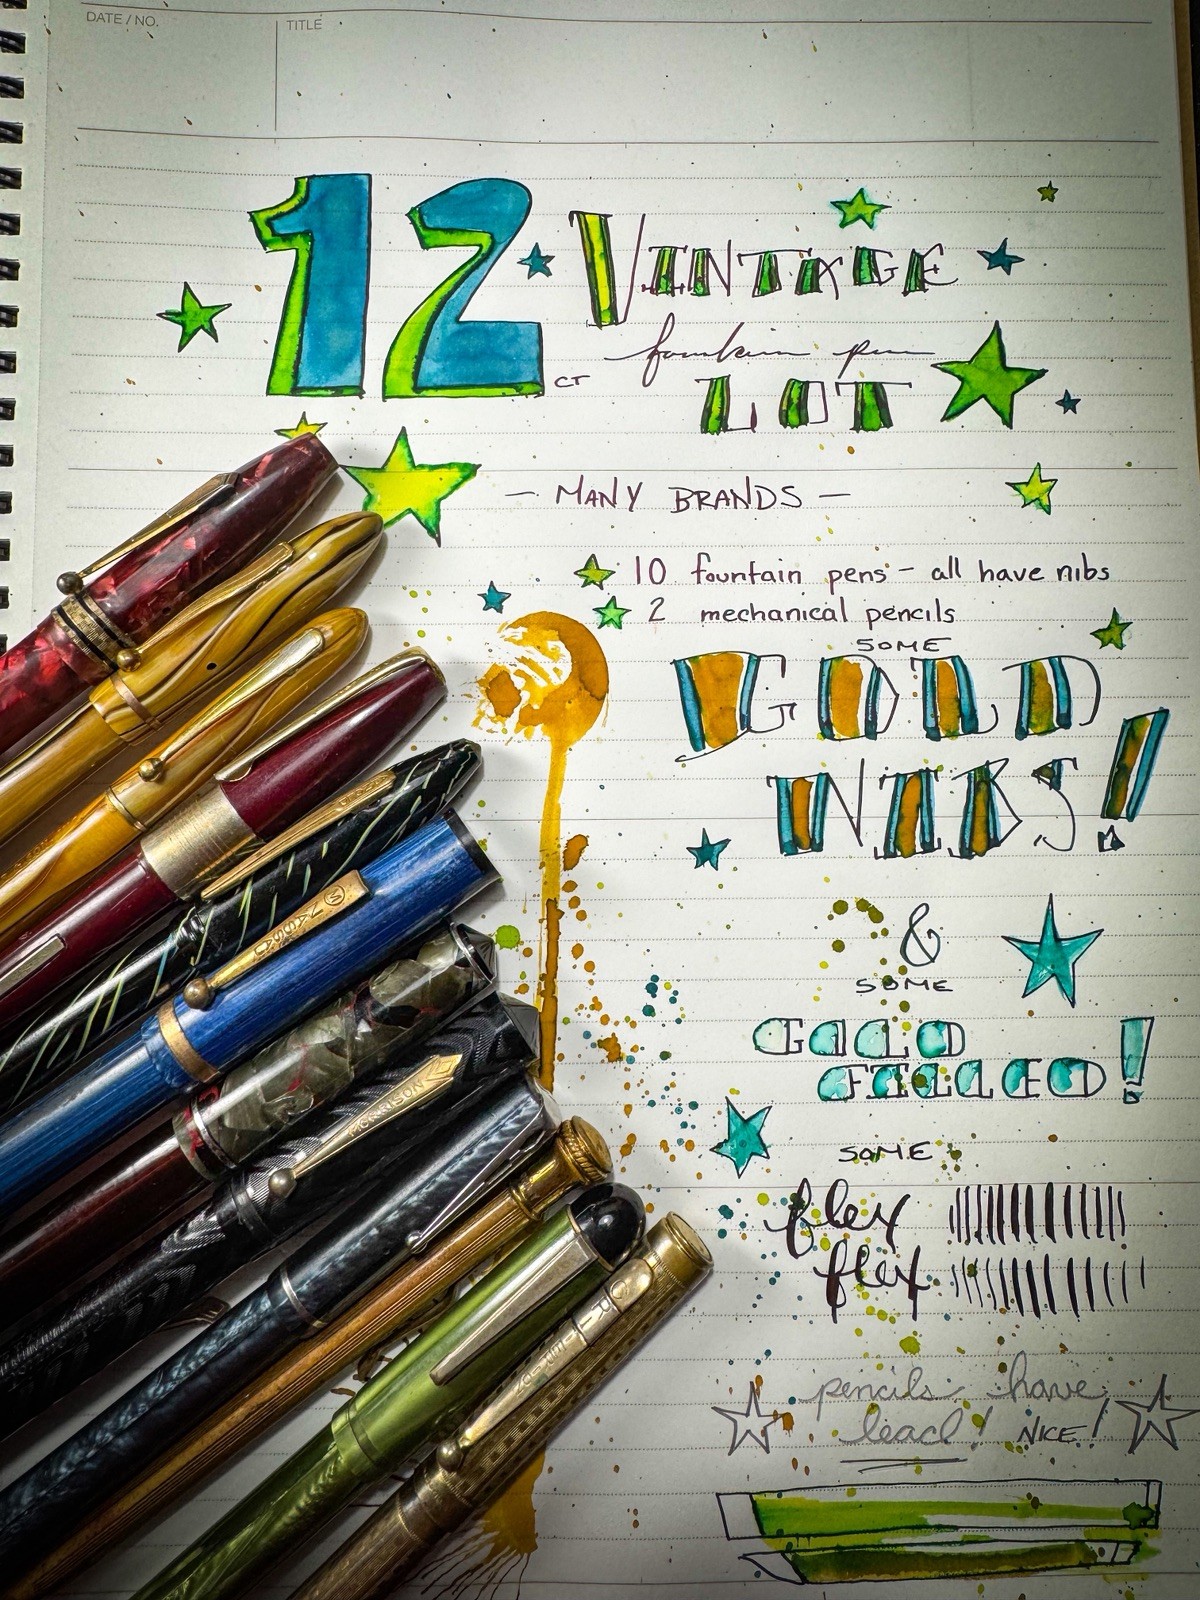 DATE / NO.
TITLE
12 CT
VINTAGE
fountain pen
LOT
— MANY BRANDS —
10 fountain pens - all have nibs
2 mechanical pencils
SOME
GOLD
NIBS!
&
SOME
GOLD
FILLED!
SOME
flex
flex
pencils have
lead! NICE!
MORRISON